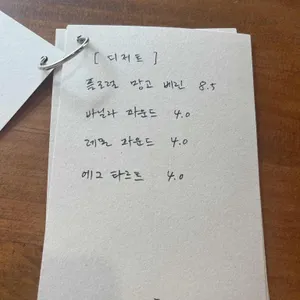 [ 디저트 ]
플로럴 망고 베린 8.5
바닐라 파운드 4.0
레몬 파운드 4.0
에그 타르트 4.0